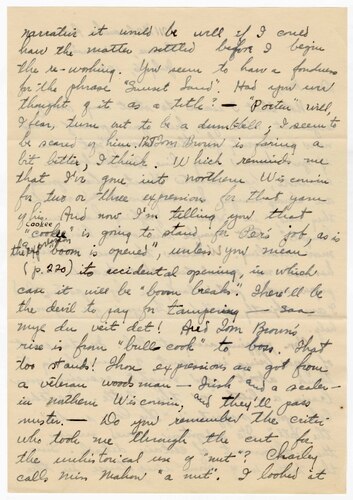 narrative it would be well if I could
have the matter settled before I begin
the re-working. You seem to have a fondness
for the phrase "Sunset Land". Had you ever
thought of it as a title? — "Porter" will,
I fear, turn out to be a dumbbell; I seem to
be scared of him. Tom Brown is faring a
bit better, I think. Which reminds me
that I've gone into northern Wisconsin
for two or three expressions for that yarn
of his. And now I'm telling you that
"cookee" is going to stand for Per's job, as is
the "boom is opened", unless you mean
(p. 220) its accidental opening, in which
case it will be "boom breaks". There'll be
the devil to pay for tampering — saa
mye du veit det! And Tom Brown's
rise is from "bull cook" to boss. That
too stands! Those expressions are got from
a veteran woodsman — Irish and a scaler —
in northern Wisconsin, and they'll pass
muster. — Do you remember the critic
who took me through the cut for
the unhistorical use of "nut"? Charley
calls Miss Mahon "a nut". I looked it